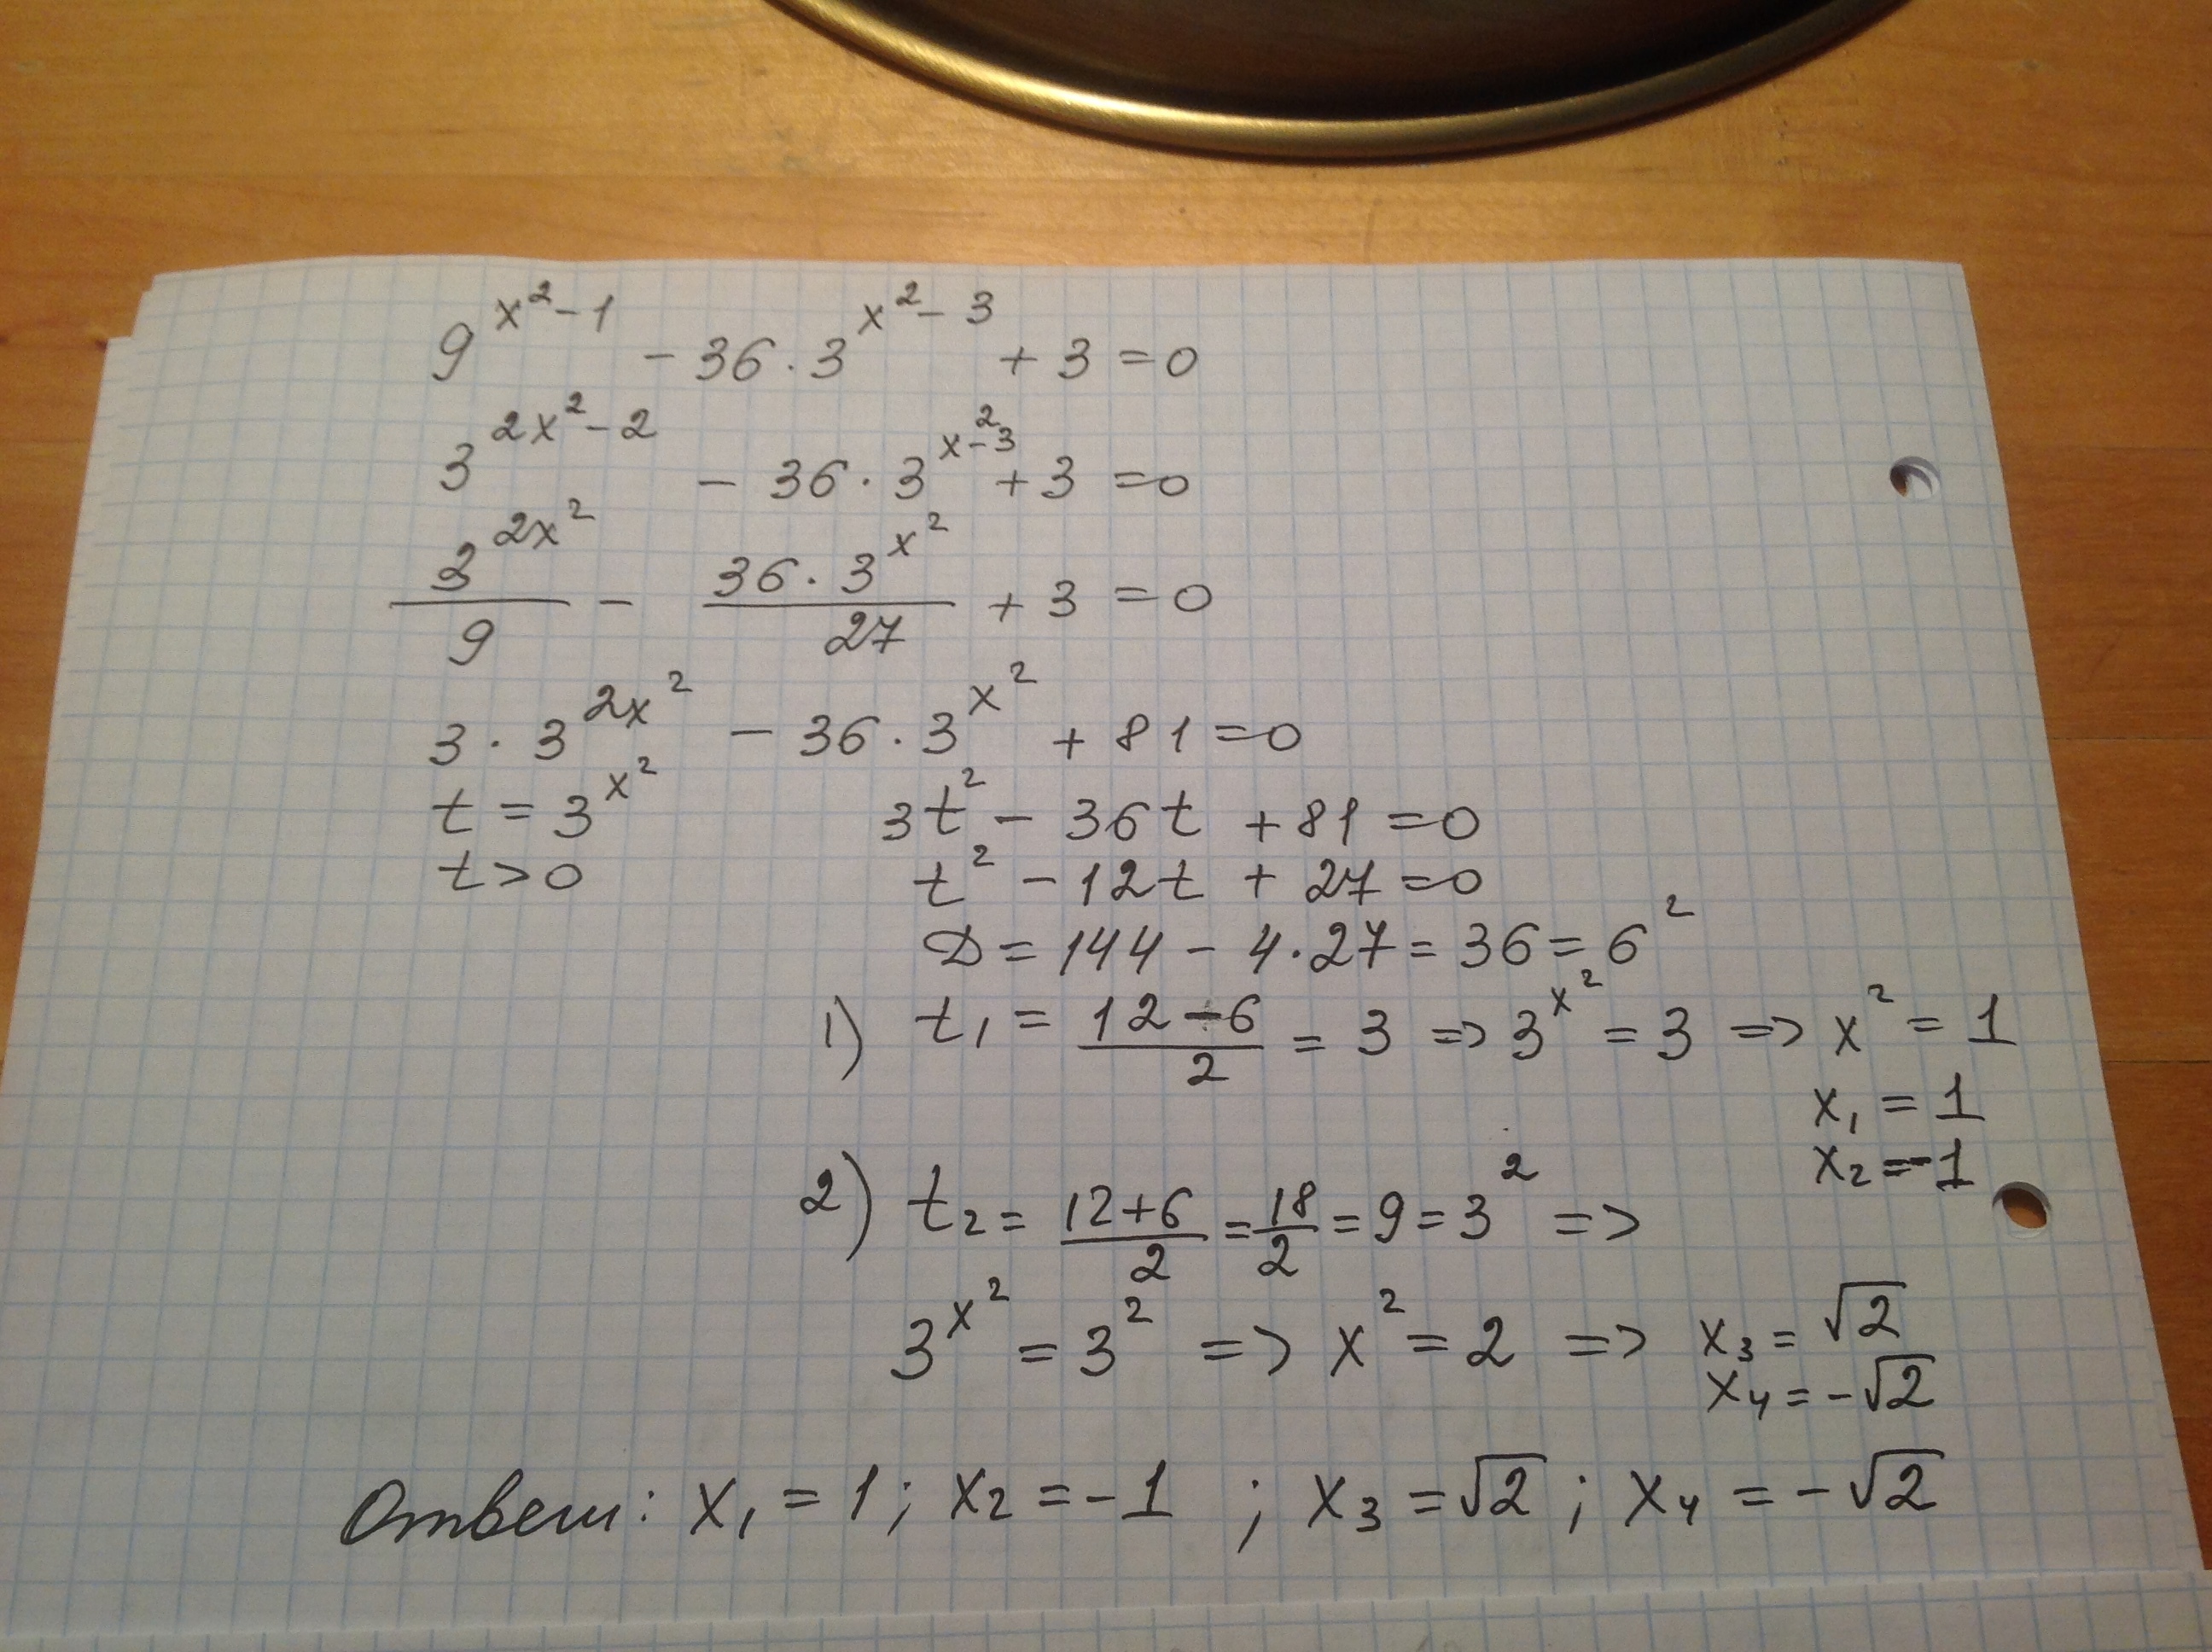 9^(x²-1) - 36 · 3^(x²-3) + 3 = 0
3^(2x²-2) - 36 · 3^(x²-3) + 3 = 0
3^(2x²)/9 - (36 · 3^(x²))/27 + 3 = 0
3 · 3^(2x²) - 36 · 3^(x²) + 81 = 0
t = 3^(x²)    3t² - 36t + 81 = 0
t > 0    t² - 12t + 27 = 0
D = 144 - 4·27 = 36 = 6²
1) t₁ = (12-6)/2 = 3 => 3^(x²) = 3 => x² = 1
x₁ = 1
x₂ = -1
2) t₂ = (12+6)/2 = 18/2 = 9 = 3² =>
3^(x²) = 3² => x² = 2 => x₃ = √2
x₄ = -√2
Ответ: x₁ = 1; x₂ = -1 ; x₃ = √2; x₄ = -√2